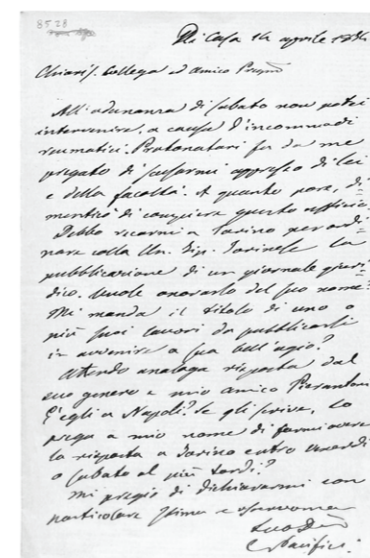 8528
Di Casa 14 aprile
Chiaris. Collega ed amico Pregmo
All'adunanza di sabato non potei
intervenire, a causa d'incommodi
reumatici. Protonotari fu da me
pregato di scusarmi appresso di lei
e della facoltà. A quanto pare, di=
menticò di compiere questo ufficio.
Debbo recarmi a Torino per ordi=
nare colla Un. Tip. Torinese la
pubblicazione di un giornale giuri=
dico. Vuole onorarlo del suo nome?
Mi manda il titolo di uno o
più suoi lavori da pubblicarsi
in avvenire a sua bell'agio?
Attendo analoga risposta dal
suo genero e mio amico Pierantoni.
È egli a Napoli? Se gli scrive, lo
prega a mio nome di farmi avere
la risposta a Torino entro venerdì
o sabato al più tardi?
Mi pregio di dichiararmi con
particolare stima e osservanza
Suo
Pacifici